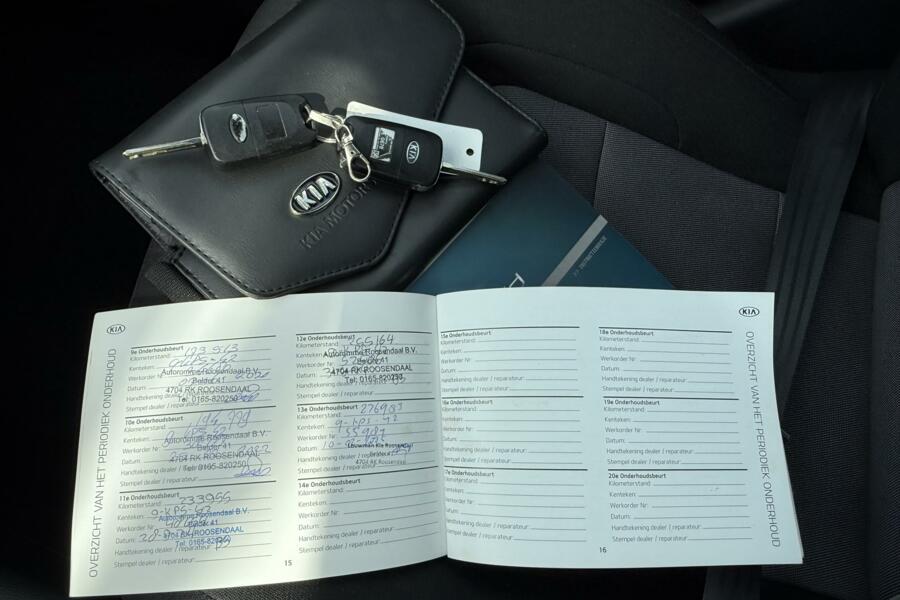 KIA
KIA
KIA MOTORS
KIA
OVERZICHT VAN HET PERIODIEK ONDERHOUD
9e Onderhoudsbeurt
Kilometerstand:
Kenteken:
Werkorder Nr:
Autoromme Roosendaal B.V.
Belder 41
Datum:
4704 RK ROOSENDAAL
Handtekening dealer
Tel: 0165-820250
Stempel dealer / reparateur:
10e Onderhoudsbeurt
Kilometerstand:
Kenteken:
Autoromme Roosendaal B.V.
Werkorder Nr:
Belder 41
Datum:
4704 RK ROOSENDAAL
Handtekening dealer
Tel: 0165-820250
Stempel dealer / reparateur:
11e Onderhoudsbeurt
Kilometerstand: 233955
Kenteken: 9-KPS-42
Autoromme Roosendaal B.V.
Werkorder Nr:
Belder 41
Datum:
4704 RK ROOSENDAAL
Handtekening dealer / reparateur
Tel: 0165-820250
Stempel dealer / reparateur:
12e Onderhoudsbeurt
Kilometerstand: 255164
Kenteken:
Autoromme Roosendaal B.V.
Werkorder Nr:
Belder 41
Datum:
4704 RK ROOSENDAAL
Handtekening dealer
Tel: 0165-820250
Stempel dealer / reparateur:
13e Onderhoudsbeurt
Kilometerstand:
Kenteken: 9-KPS-42
Werkorder Nr:
Datum:
Louwman Kia Roosendaal
Handtekening dealer / reparateur
Stempel dealer / reparateur:
4704 RK Roosendaal
14e Onderhoudsbeurt
Kilometerstand:
Kenteken:
Werkorder Nr:
Datum:
Handtekening dealer / reparateur:
Stempel dealer / reparateur:
15
15e Onderhoudsbeurt
Kilometerstand:
Kenteken:
Werkorder Nr:
Datum:
Handtekening dealer / reparateur:
Stempel dealer / reparateur:
16e Onderhoudsbeurt
Kilometerstand:
Kenteken:
Werkorder Nr:
Datum:
Handtekening dealer / reparateur:
Stempel dealer / reparateur:
17e Onderhoudsbeurt
Kilometerstand:
Kenteken:
Werkorder Nr:
Datum:
Handtekening dealer / reparateur:
Stempel dealer / reparateur:
18e Onderhoudsbeurt
Kilometerstand:
Kenteken:
Werkorder Nr:
Datum:
Handtekening dealer / reparateur:
Stempel dealer / reparateur:
19e Onderhoudsbeurt
Kilometerstand:
Kenteken:
Werkorder Nr:
Datum:
Handtekening dealer / reparateur:
Stempel dealer / reparateur:
20e Onderhoudsbeurt
Kilometerstand:
Kenteken:
Werkorder Nr:
Datum:
Handtekening dealer / reparateur:
Stempel dealer / reparateur:
16
KIA
OVERZICHT VAN HET PERIODIEK ONDERHOUD